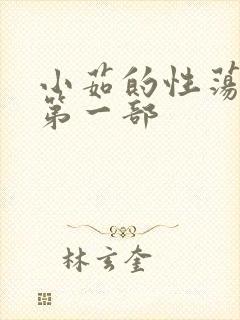 小茹的性荡
第一部
林玄奎